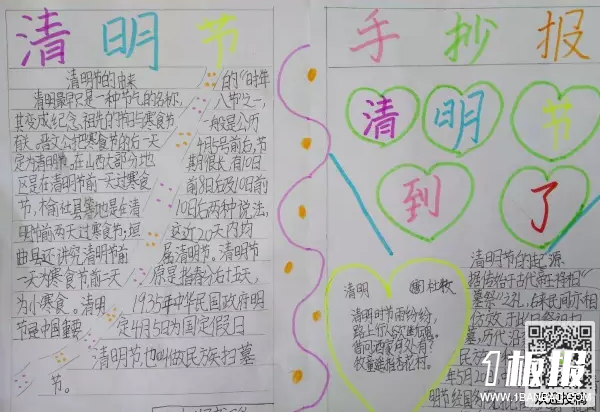 清明节
手抄报
清明节的由来
清明最早只是一种节气的名称,
其变成纪念祖先的节日与寒食节
有关。晋文公把寒食节的后一天
定为清明节。在山西大部分地
区是在清明节前一天过寒食
节,榆社县等地是在清
明节前两天过寒食节;垣
曲县还讲究清明节前
一天为寒食节前二天
为小寒食。清明
节是中国重要
的"时年
八节"之一,
一般是公历
4月5号前后,节
期很长,有10日
前8日后及10日前
10日后两种说法,
这近20天内均
属清明节。清明节
原是指春分后十五天,
1935年中华民国政府明
定4月5日为国定假日
清明节也叫做民族扫墓
节。
清明节
到了
清明
杜牧
清明时节雨纷纷,
路上行人欲断魂。
借问酒家何处有
牧童遥指杏花村。
清明节的起源
据传始于古代帝王将相
"墓祭"之礼,
1板报
WWW.1BANBAO.COM